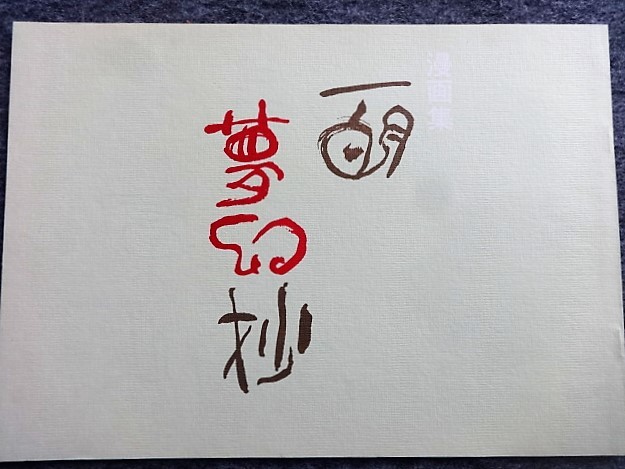 漫画集
一胡
夢幻抄